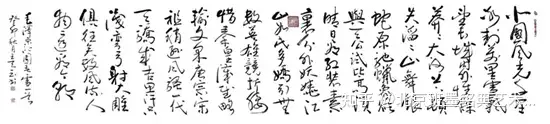 北國風光千里
冰封萬里雪飄
望長城內外惟餘
莽莽大河上下
頓失滔滔山舞銀
蛇原馳蠟象欲
與天公試比高須
晴日看紅裝素
裹分外妖嬈江
山如此多嬌引無
數英雄競折腰
惜秦皇漢武略
輸文采唐宗宋
祖稍遜風騷一代
天驕成吉思汗只
識彎弓射大雕
俱往矣數風流人
物還看今朝
毛澤東沁園春雪
癸卯秋
知乎